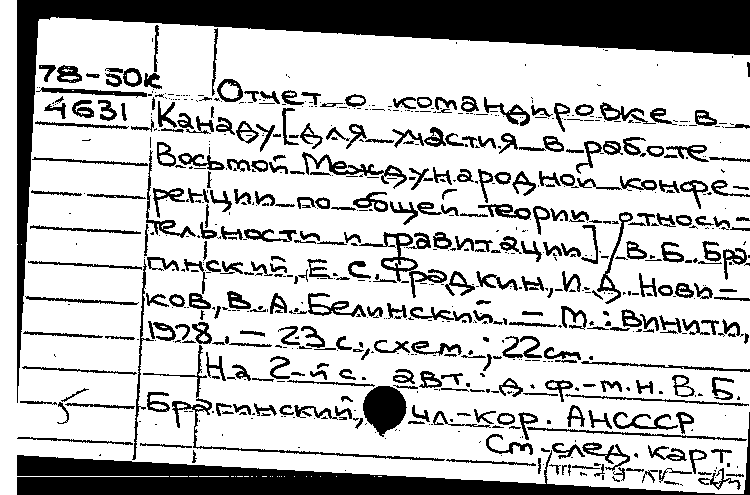 78-50к
4631
Отчет о командировке в
Канаду [для участия в работе
Восьмой Международной конфе-
ренции по общей теории относи-
тельности и гравитации] / В.Б. Бра-
гинский, Е.С. Фрадкин, И.Д. Нови-
ков, В.А. Белинский. – М.: ВИНИТИ,
1978. – 23 с., схем.; 22 см.
На 2-й с. авт.: д.ф.-м.н. В.Б.
Брагинский, чл.-кор. АНСССР
См. след. карт.